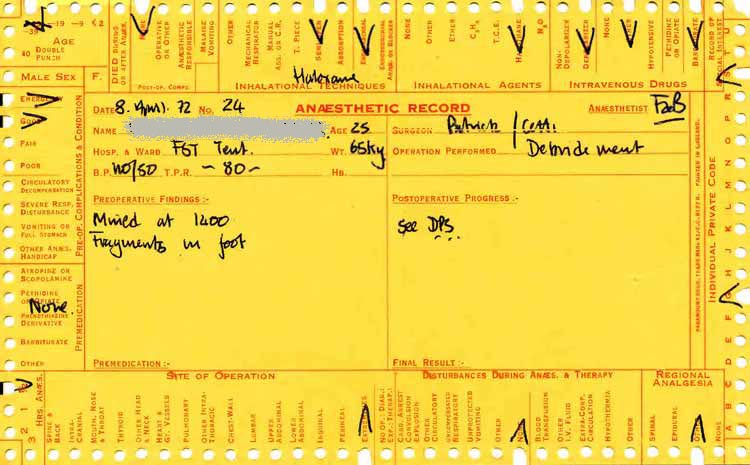 -39 -19 -9 <2
AGE
40 DOUBLE PUNCH
MALE SEX F.
DIED DURING OR AFTER ANÆS.
NONE
OPERATIVE OR OTHER
ANÆSTHETIC RESPONSIBLE
MALAISE VOMITING
OTHER
POST-OP. COMPS.
MECHANICAL RESPIRATOR
MANUAL ASS. OR C.R.
T. PIECE
ABSORPTION
Halothane
INHALATIONAL TECHNIQUES
NONE
OTHER
ETHER
C₃H₆
T.C.E.
HALOTHANE
N₂O
INHALATIONAL AGENTS
NON-DEPOLARIZER
DEPOLARIZER
NONE
OTHER
HYPOTENSIVE
PETHIDINE OR OPIATE
BARBITURATE
INTRAVENOUS DRUGS
RECORD OF SPECIAL INTEREST
DATE 8. April. 72 No. 24 ANÆSTHETIC RECORD ANÆSTHETIST
NAME AGE 25 SURGEON
HOSP. & WARD FST Tent. WT. 65Kg OPERATION PERFORMED Debridement
B.P. 110/50 T.P.R. - 80 - HB.
PREOPERATIVE FINDINGS :- POSTOPERATIVE PROGRESS :-
Mined at 1400 See DPS
Fragments in foot
PREMEDICATION :- FINAL RESULT :-
EMERGENCY
GOOD
FAIR
POOR
CIRCULATORY DECOMPENSATION
SEVERE RESP. DISTURBANCE
VOMITING OR FULL STOMACH
OTHER ANÆS. HANDICAP
PRE-OP. COMPLICATIONS & CONDITION
ATROPINE OR SCOPOLAMINE
PETHIDINE OR OPIATE
None
PHENOTHIAZINE DERIVATIVE
BARBITURATE
OTHER
PREMEDICATION
INDIVIDUAL PRIVATE CODE
A B C D E F G H J K L M N O P R S T U
SITE OF OPERATION
3 2 1
HRS. ANÆS.
SPINE & BACK
INTRA-CRANIAL
MOUTH, NOSE & THROAT
THYROID
OTHER HEAD & NECK
HEART & GT. VESSELS
PULMONARY
OTHER INTRA-THORACIC
CHEST-WALL
LUMBAR
UPPER ABDOMINAL
LOWER ABDOMINAL
INGUINAL
PERINEAL
DISTURBANCES DURING ANÆS. & THERAPY
CARD. ARREST
CONVULSION
EXPLOSION
OTHER CIRCULATORY
UNCOMPENSATED RESPIRATORY
UNPROTECTED VOMITING
OTHER
BLOOD TRANSFUSION
OTHER I.V. FLUID
EXTRA-CORP. CIRCULATION
HYPOTHERMIA
OTHER
REGIONAL ANALGESIA
SPINAL
EPIDURAL
NONE